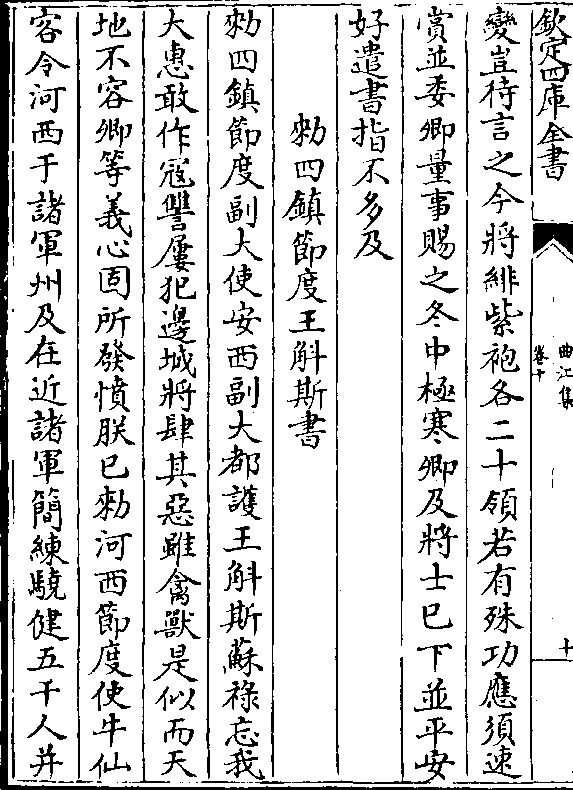 欽定四庫全書
曲江集
卷十
十
變豈待言之今將緋紫袍各二十領若有殊功應須速
賞並委卿量事賜之冬中極寒卿及將士已下並平安
好遣書指不多及
勑四鎮節度王斛斯書
勑四鎮節度副大使安西副大都護王斛斯蘇祿忘我
大惠敢作寇讐屢犯邊城將肆其惡雖禽獸是似而天
地不容卿等義心固所發憤朕已勑河西節度使牛仙
容令河西于諸軍州及在近諸軍簡練驍健五千人并